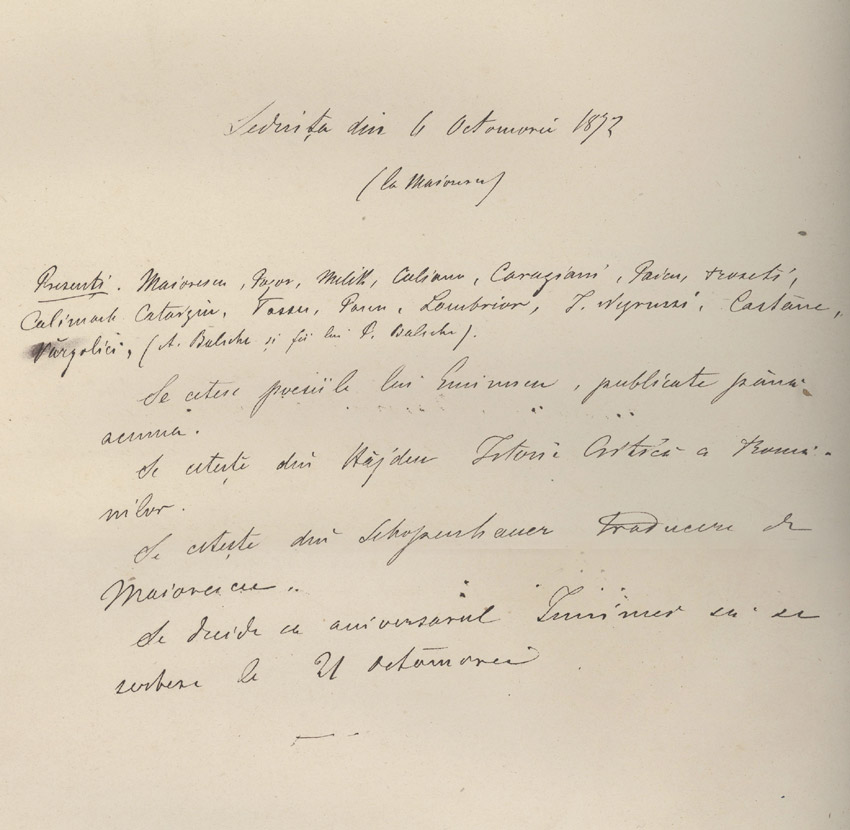 Ședința din 6 Octomvrie 1872
(la Maiorescu)
Presenți. Maiorescu, Pogor, Melik, Culianu, Caragiani, Paicu, Roseti,
Calimach Catargiu, Tassu, Panu, Lambrior, I. Negruzzi, Castano,
Vârgolici, (A. Balsche și fii lui P. Balsche).
Se citesc poesiile lui Eminescu, publicate până
acuma.
Se citește din Hâjdeu Istoria Critică a Româ-
nilor.
Se citește din Schopenhauer traducere de
Maiorescu.
Se decide ca aniversarul Junimei să se
serbese la 21 Octomvrie